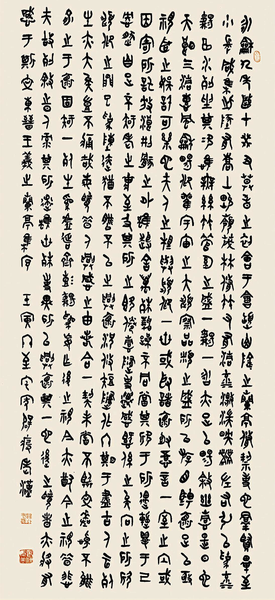 永和九年歲在癸丑暮春之初會于會稽山陰之蘭亭脩禊事也群賢畢至
少長咸集此地有崇山峻領茂林脩竹又有清流激湍映帶左右引以為流
觴曲水列坐其次雖無絲竹管弦之盛一觴一詠亦足以暢敘幽情是日也
天朗氣清惠風和暢仰觀宇宙之大俯察品類之盛所以遊目騁懷足以極
視聽之娛信可樂也夫人之相與俯仰一世或取諸懷抱悟言一室之內或
因寄所託放浪形骸之外雖趣舍萬殊靜躁不同當其欣於所遇暫得於己
快然自足不知老之將至及其所之既倦情隨事遷感慨係之矣向之所欣
俯仰之間以為陳跡猶不能不以之興懷況脩短隨化終期於盡古人云死
生亦大矣豈不痛哉每攬昔人興感之由若合一契未嘗不臨文嗟悼不能
喻之於懷固知一死生為虛誕齊彭殤為妄作後之視今亦由今之視昔悲
夫故列敘時人錄其所述雖世殊事異所以興懷其致一也後之攬者亦將有
感于斯文 晉王羲之蘭亭集序 壬寅